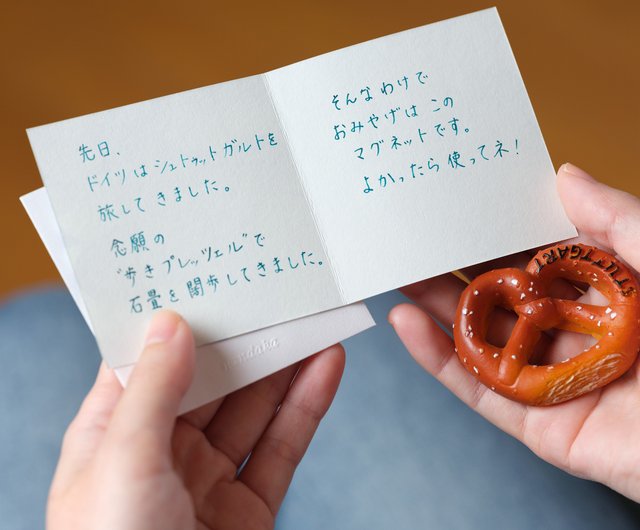 先日、
ドイツはシュトゥットガルトを
旅してきました。
念願の
"歩きプレッツェル"で
石畳を闊歩してきました。
そんなわけで
おみやげは この
マグネットです。
よかったら 使ってネ！
STUTTGART